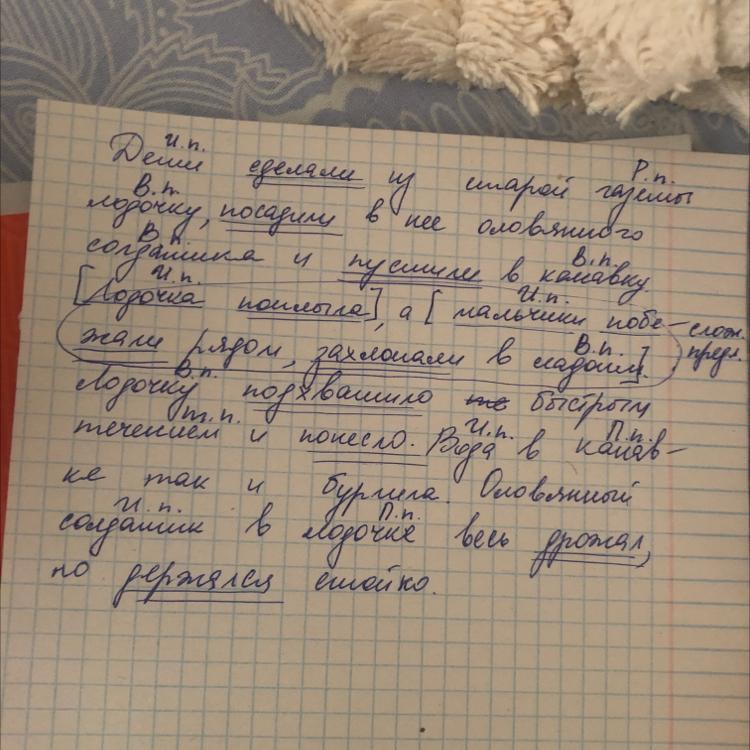 И.п. Р.п.
Дети сделали из старой газеты
В.п.
лодочку, посадили в нее оловянного
В.п. В.п.
солдатика и пустили в канавку.
И.п. И.п.
[Лодочка поплыла], а [мальчики побе- слож.
В.п. предл.
жали рядом, захлопали в ладоши].
В.п.
Лодочку подхватило быстрым
т.п. И.п. П.п.
течением и понесло. Вода в канав-
ке так и бурлила. Оловянный
И.п. П.п.
солдатик в лодочке весь дрожал,
но держался стойко.